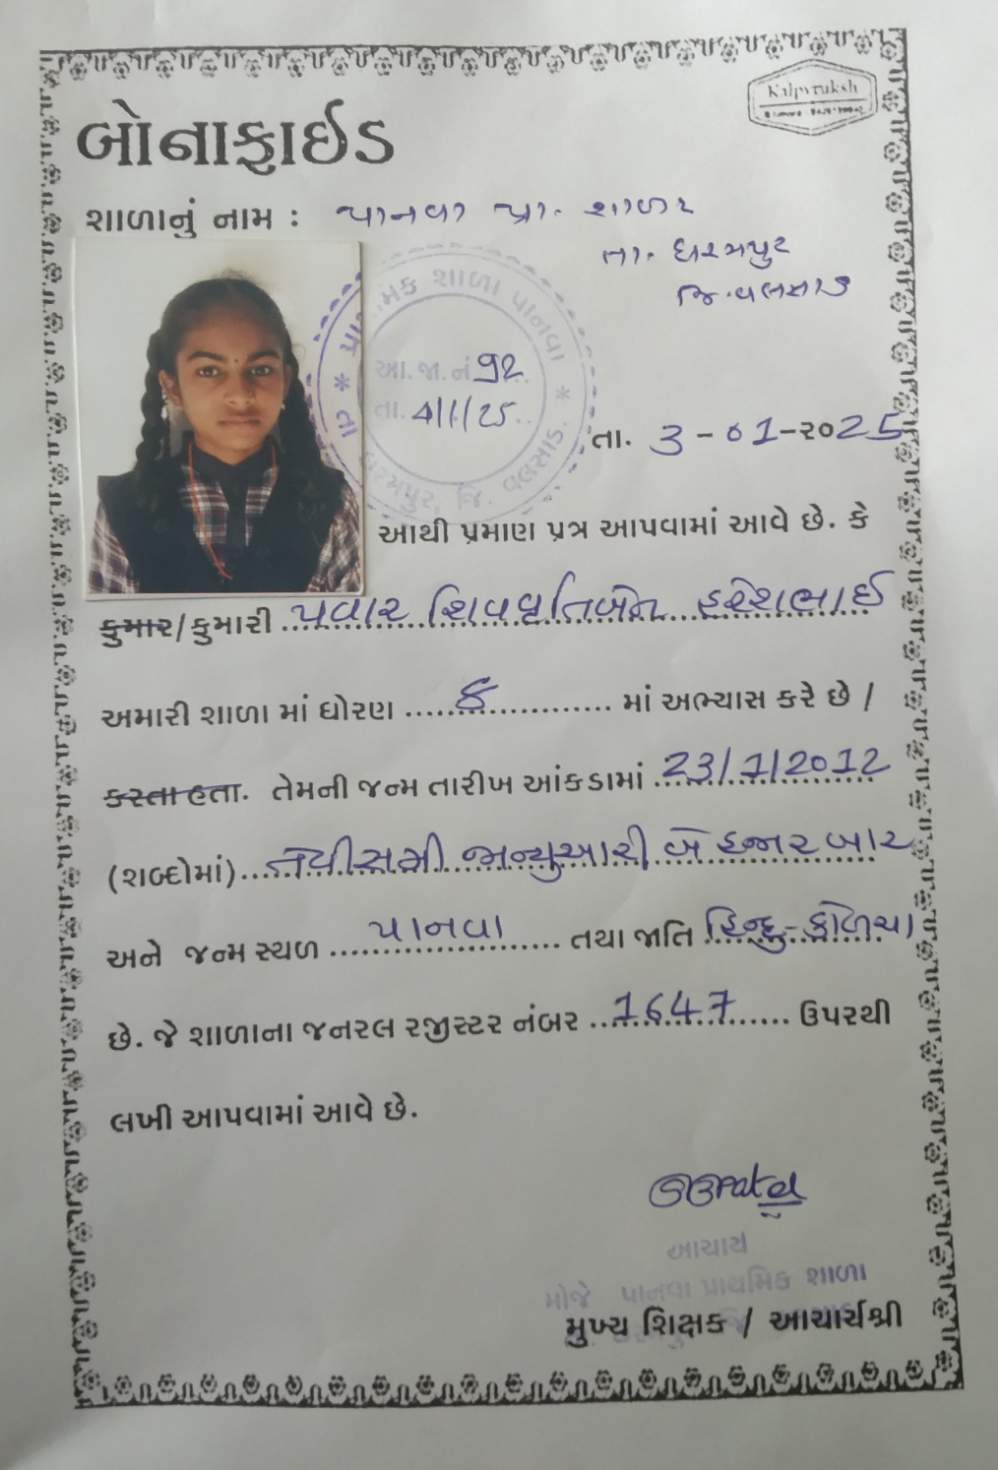 Kalpvruksh
બોનાફાઈડ
શાળાનું નામ : પાનવા પ્રા. શાળા
તા. ધરમપુર
જિ. વલસાડ
મક શાળા પાનવા
આ.જા.નં 92
તા. 4/1/25
તા. 3-01-૨૦25
રમપુર, જિ. વલસાડ.
આથી પ્રમાણ પ્રત્ર આપવામાં આવે છે. કે
કુમાર/કુમારી પવાર શિવધૃતિબેન હરેશભાઈ
અમારી શાળા માં ધોરણ ૬ માં અભ્યાસ કરે છે /
કરતા હતા. તેમની જન્મ તારીખ આંકડામાં 23/1/2012
(શબ્દોમાં) ત્રેવીસમી જાન્યુઆરી બે હજાર બાર
અને જન્મ સ્થળ પાનવા તથા જાતિ હિન્દુ-કોળચા
છે. જે શાળાના જનરલ રજીસ્ટર નંબર 1647 ઉપરથી
લખી આપવામાં આવે છે.
આચાર્ય
મોજે પાનવા પ્રાથમિક શાળા
મુખ્ય શિક્ષક / આચાર્યશ્રી